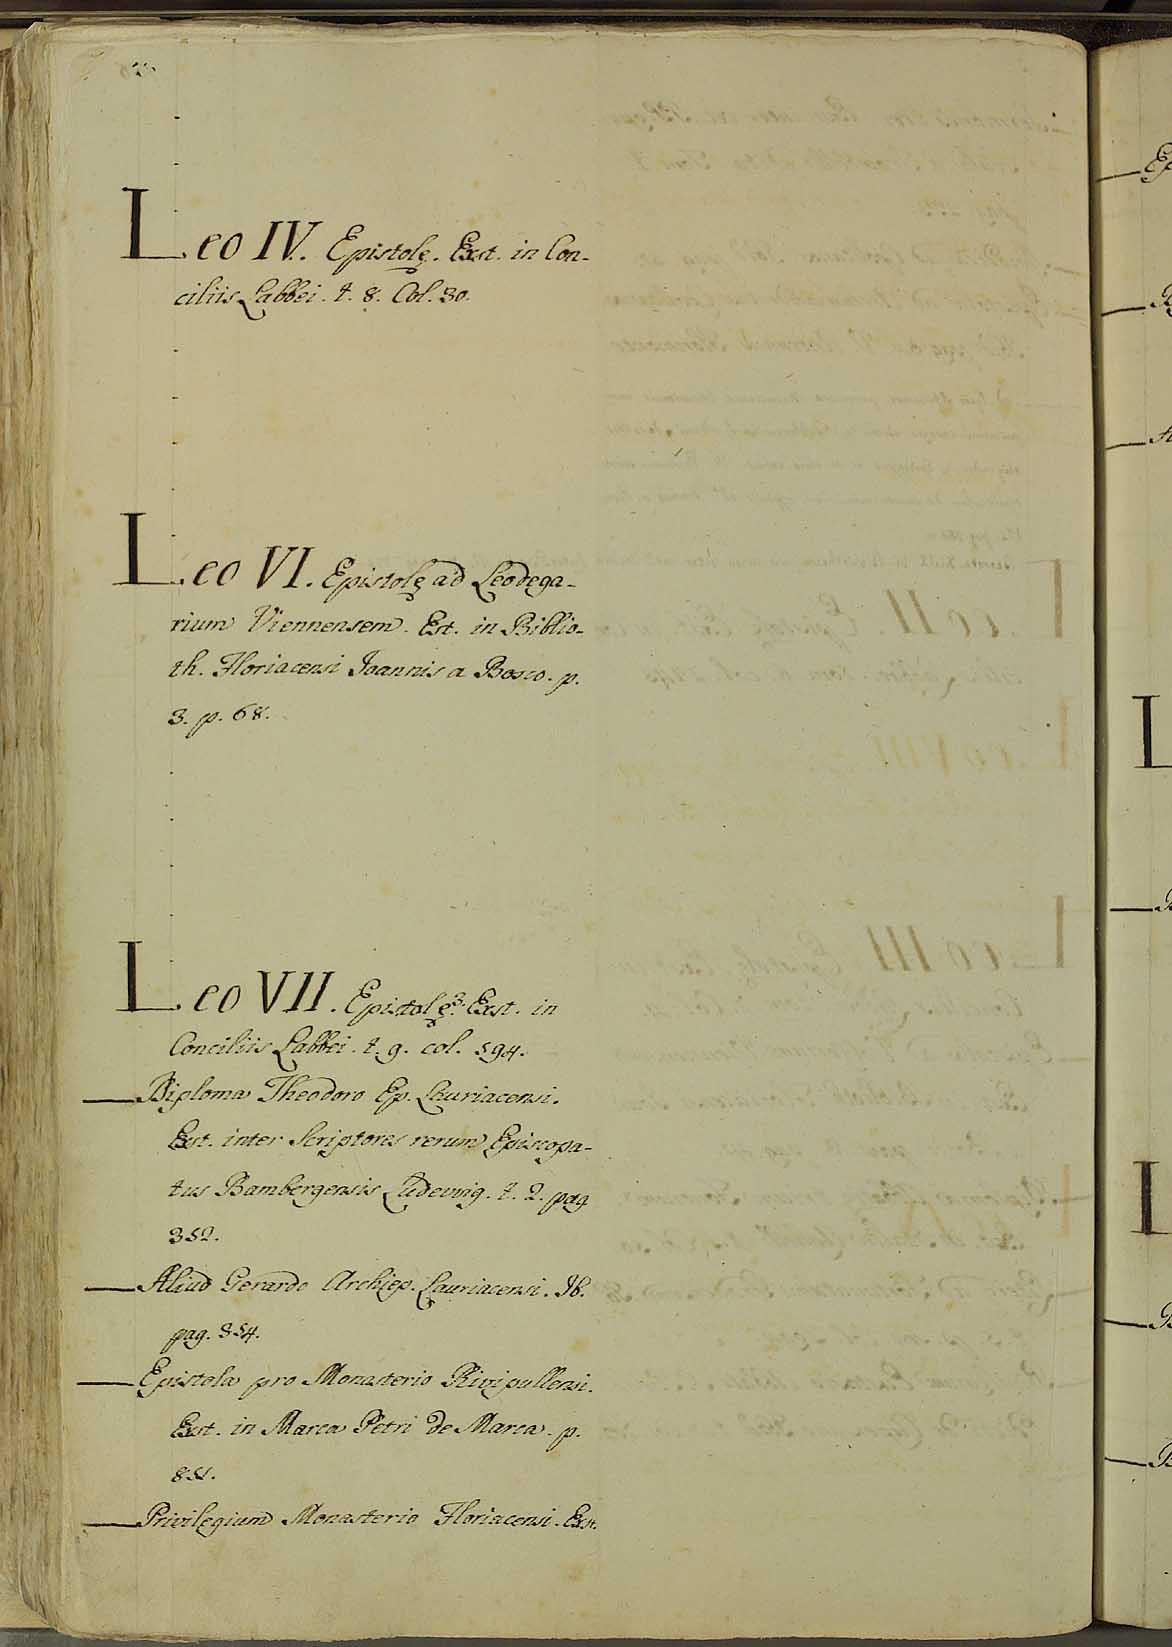 Leo IV. Epistolę. Exst. in Con-
ciliis Labbei. t. 8. Col. 30.
Leo VI. Epistolę ad Leodega-
rium Viennensem. Est. in Biblio-
th. Floriacensi Joannis a Bosco. p.
3. p. 68.
Leo VII. Epistolę 3. Exst. in
Conciliis Labbei. t. 9. col. 594.
Diploma Theodoro Ep. Lauriacensi.
Exst. inter Scriptores rerum Episcopa-
tus Bambergensis Ludewig. t. 2. pag
352.
Aliud Gerardo Archiep. Lauriacensi. Ib.
pag. 354.
Epistola pro Monasterio Rivipullensi.
Exst. in Marca Petri de Marca. p.
851.
Privilegium Monasterio Floriacensi. Exst.